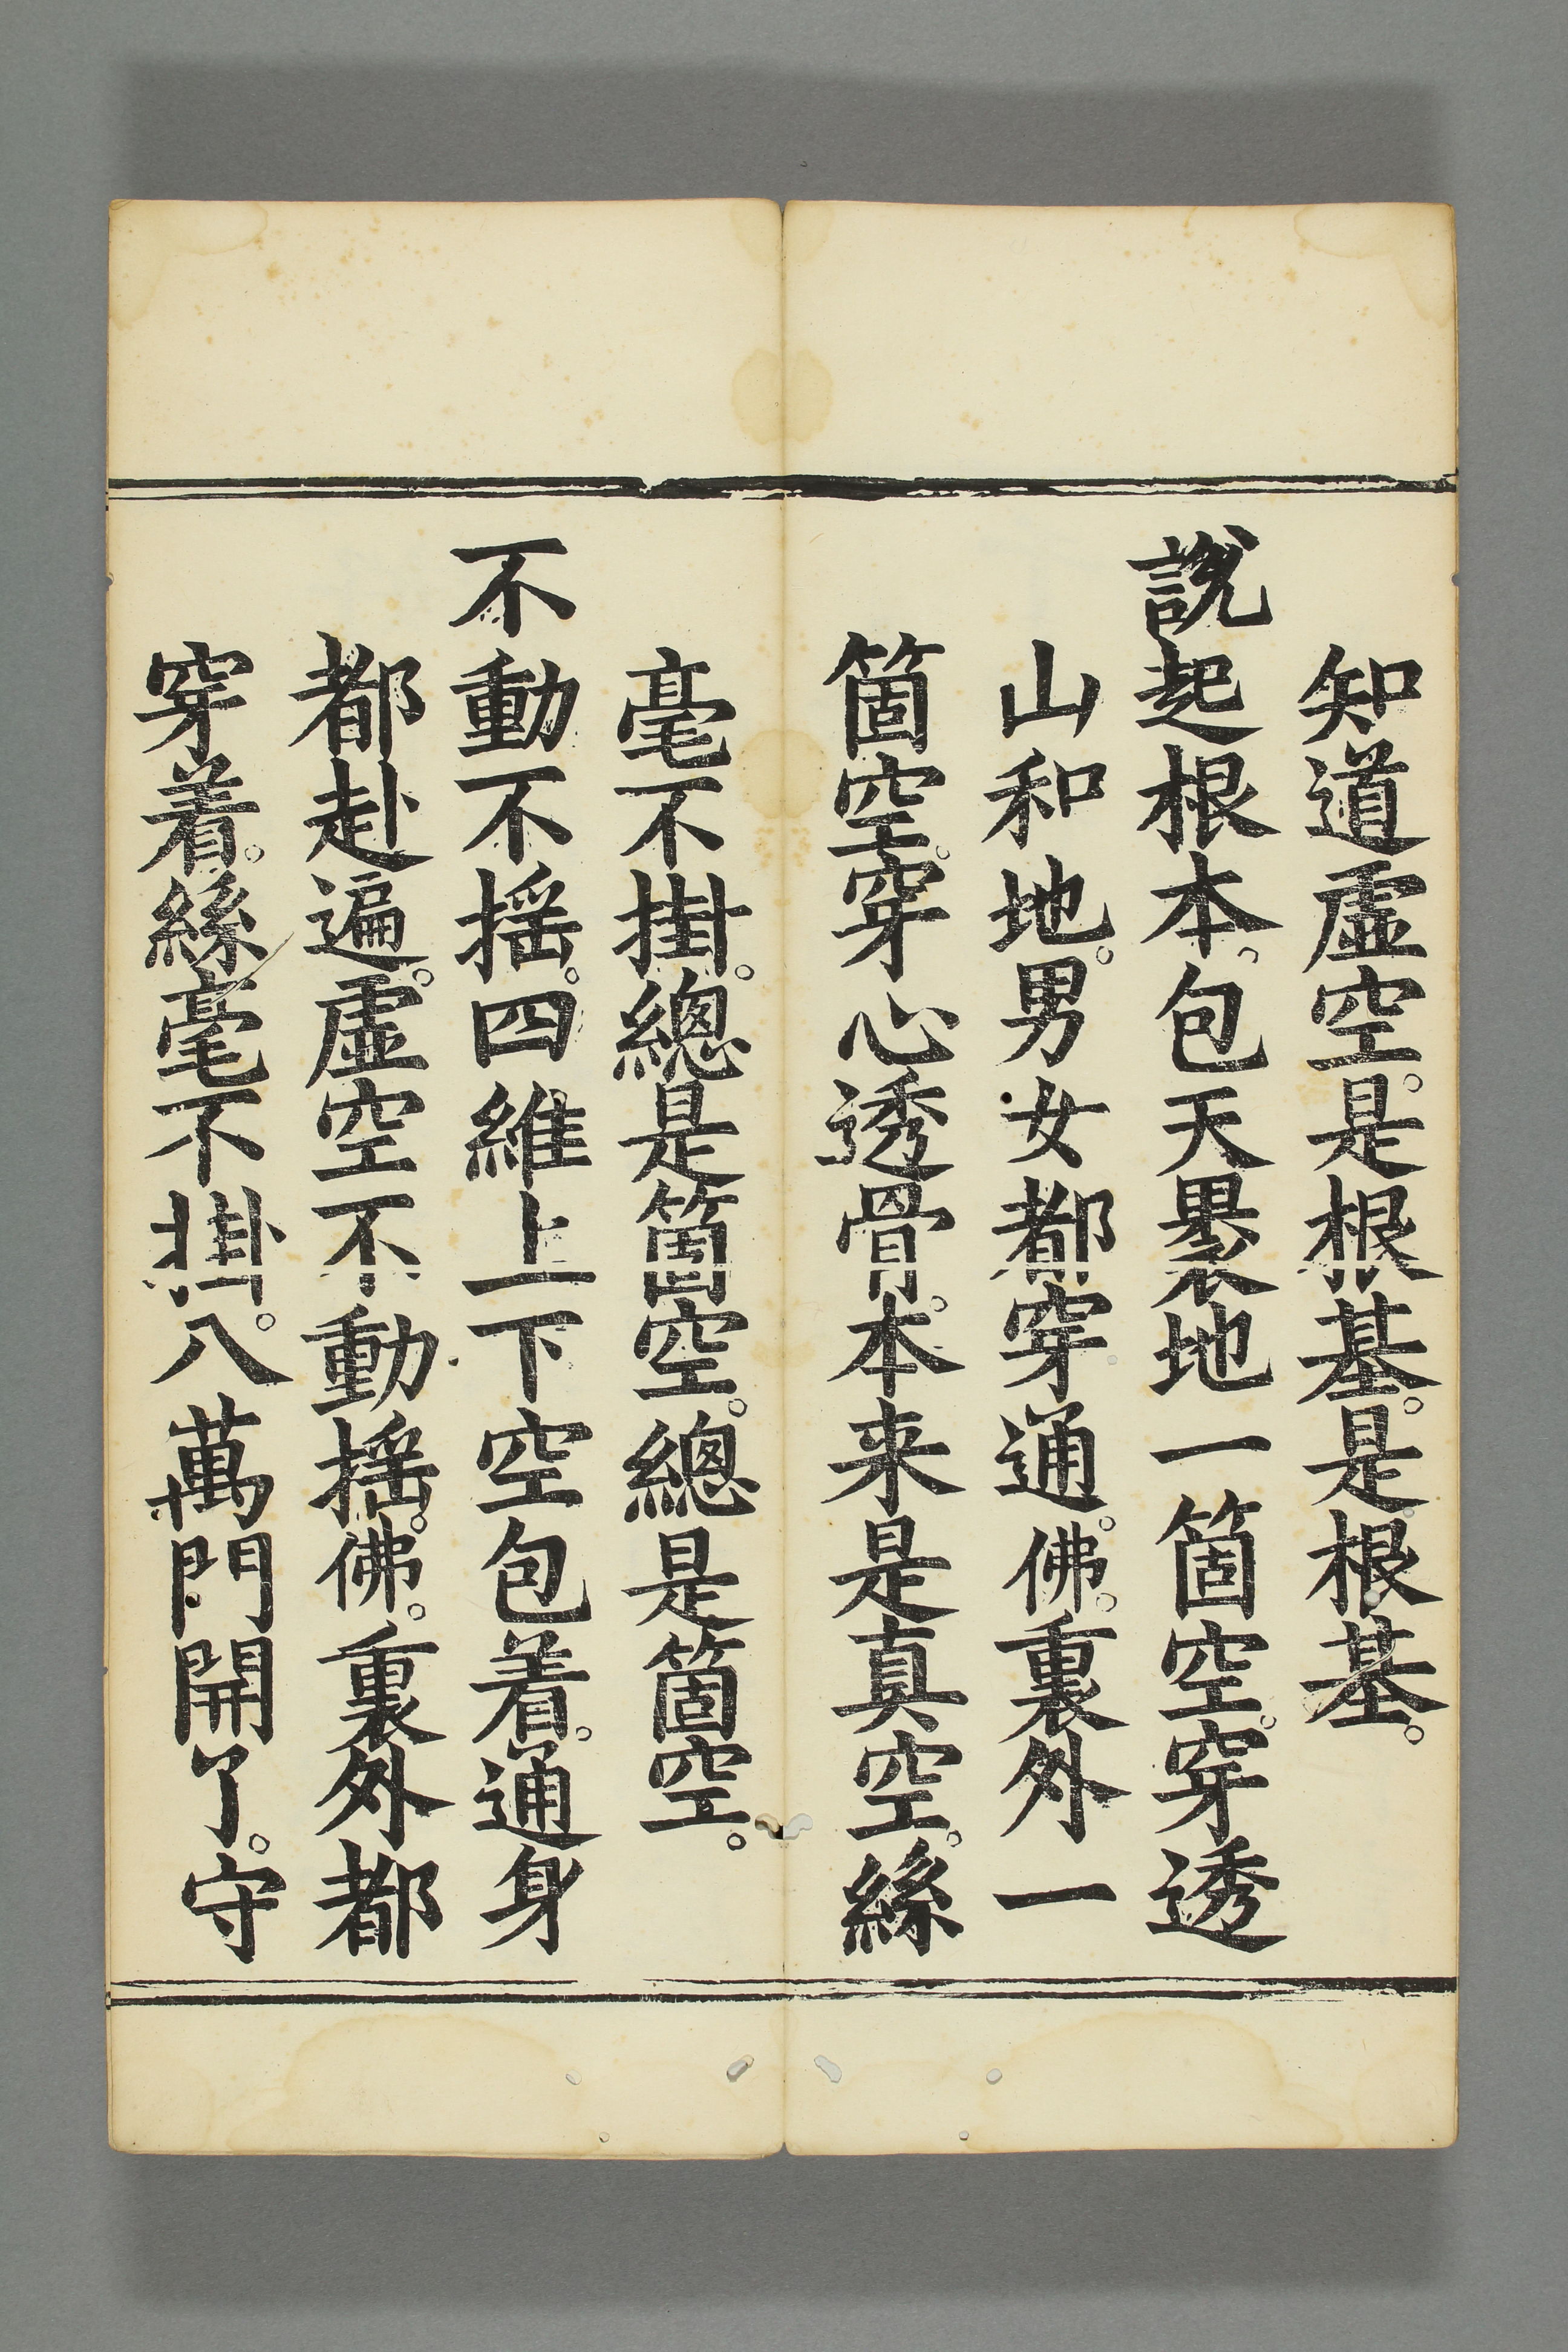 知道虛空。是根基。是根基。
說起根本。包天裹地一箇空。穿透
山和地。男女都穿通。佛。裏外一
箇空。穿心透骨。本来是真空。絲
毫不掛。總是箇空。總是箇空。
不動不揺。四維上下空包着。通身
都赴遍。虛空不動揺。佛。裏外都
穿着。絲毫不掛。八萬門開了。守